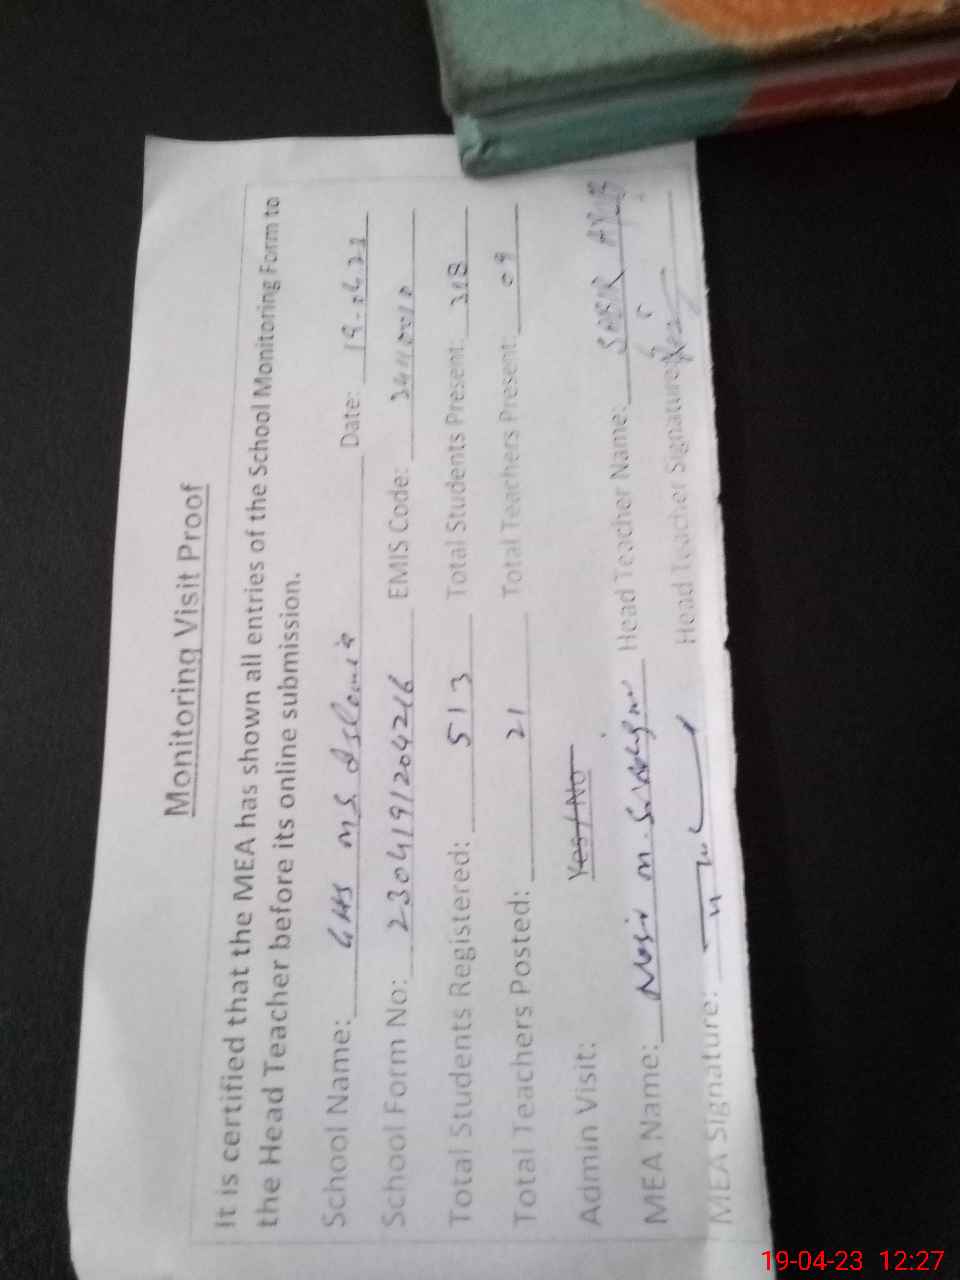 Monitoring Visit Proof
It is certified that the MEA has shown all entries of the School Monitoring Form to
the Head Teacher before its online submission.
School Name: GHS MS Islamia Date: 19-04-23
School Form No: 2304191204216 EMIS Code:
Total Students Registered: 513 Total Students Present: 318
Total Teachers Posted: 21 Total Teachers Present: 09
Admin Visit: Yes/No
MEA Name: Head Teacher Name: SABIR AYUB
MEA Signature: Head Teacher Signature:
19-04-23 12:27